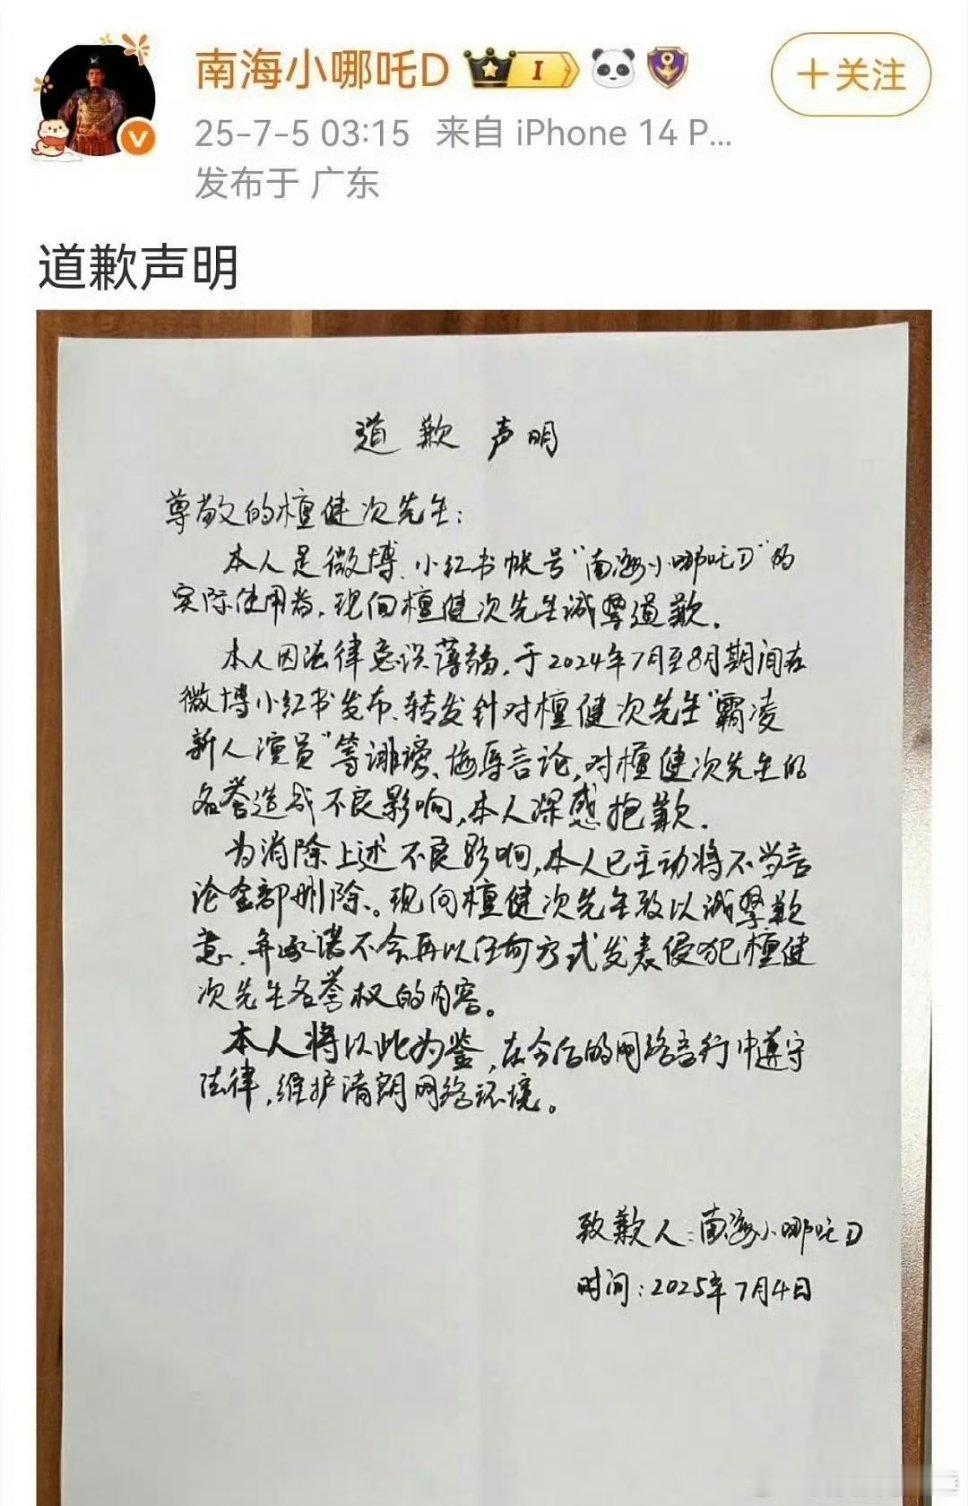 南海小哪吒D I +关注
25-7-5 03:15 来自 iPhone 14 P...
发布于 广东
道歉声明
道歉声明
尊敬的檀健次先生:
本人是微博、小红书帐号“南海小哪吒D”的
实际使用者,现向檀健次先生诚挚道歉.
本人因法律意识薄弱,于2024年7月至8月期间在
微博小红书发布、转发针对檀健次先生“霸凌
新人演员”等诽谤、侮辱言论,对檀健次先生的
名誉造成不良影响,本人深感抱歉.
为消除上述不良影响,本人已主动将不当言
论全部删除。现向檀健次先生致以诚挚歉
意,并承诺不会再以任何方式发表侵犯檀健
次先生名誉权的内容。
本人将以此为鉴,在今后的网络言行中遵守
法律,维护清朗网络环境。
致歉人:南海小哪吒D
时间:2025年7月4日